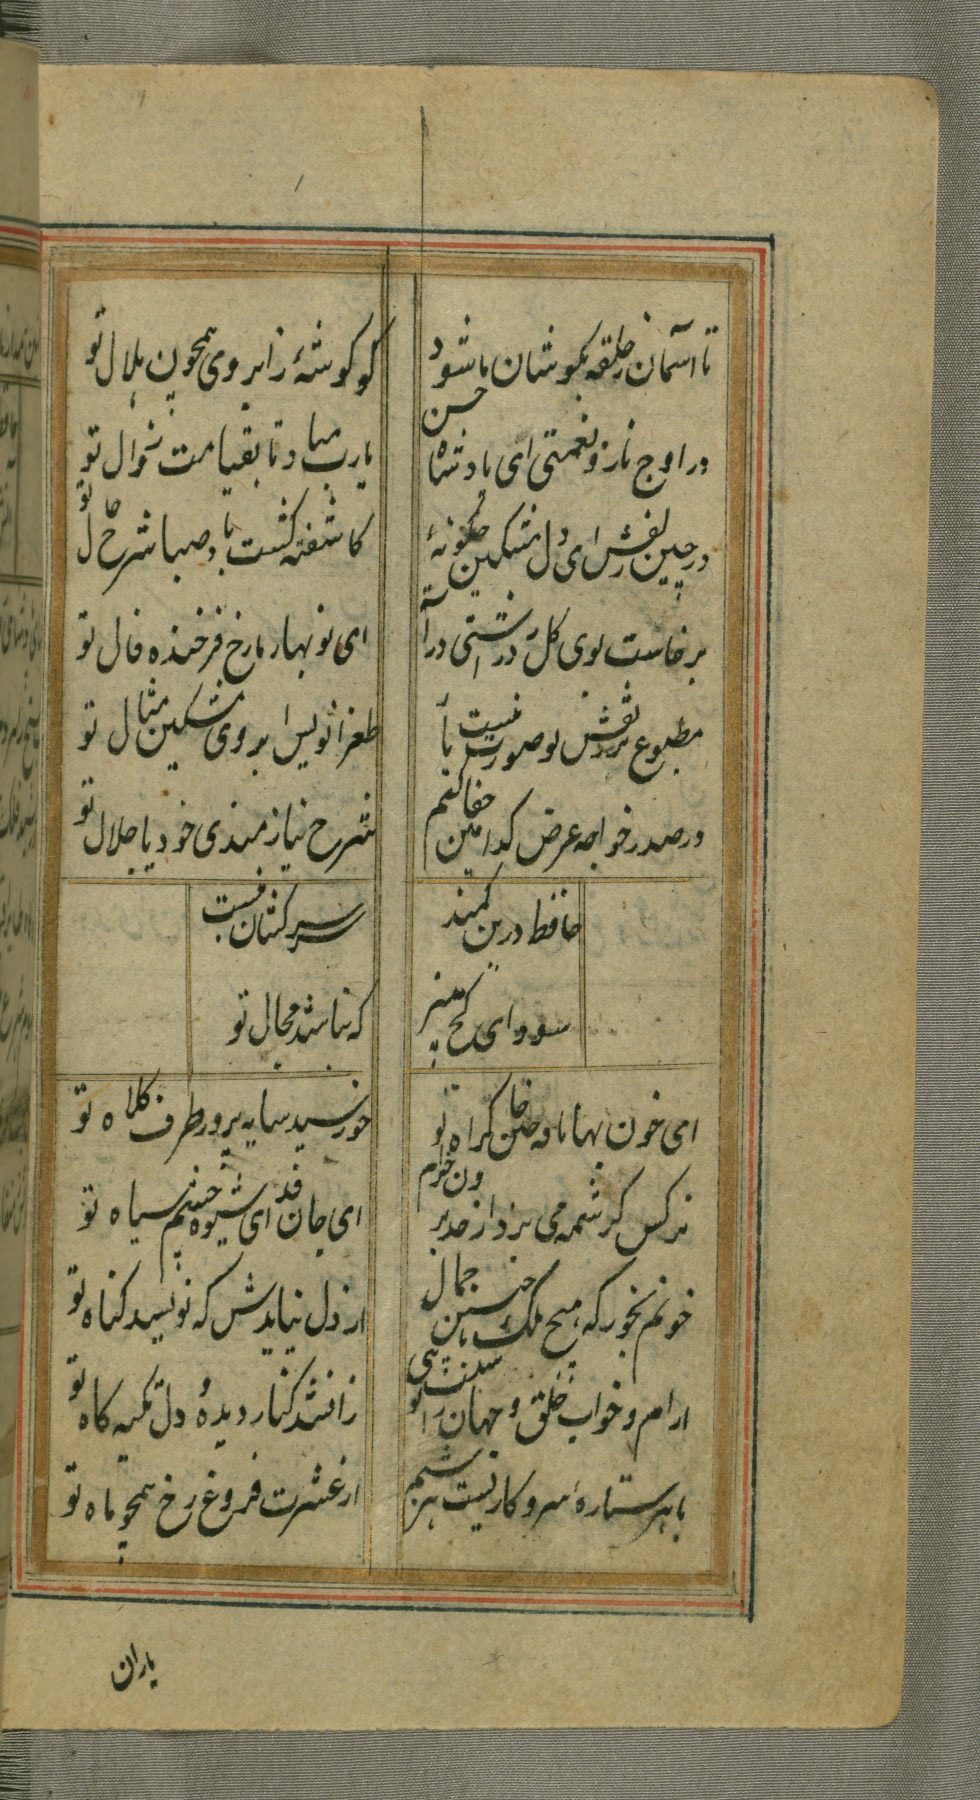 تا آسمان ز حلقه بگوشان ما شود
کو گوشهٔ ز ابروی همچون هلال تو
در اوج ناز و نعمتی ای پادشاه حسن
یارب مباد تا بقیامت زوال تو
در چین زلفش ای دل مشکین چگونهٔ
کاشفته گشت باد صبا شرح حال تو
برخاست بوی گل ز در آشتی درآ
ای نو بهار ما رخ فرخنده فال تو
مطبوع تر ز نقش تو صورت نبست باز
طغرا نویس ابروی مشکین مثال تو
در صدر خواجه عرض کدامین جفا کنم
شرح نیازمندی خود یا جلال تو
حافظ درین کمند
سر سرکشان بسیست
سودای کج مپز
که نباشد مجال تو
ای خون بهای نافه چین خاک راه تو
خورشید سایه پرور طرف کلاه تو
نرکس کرشمه می برد از حد برون خرام
ای جان فدای شیوه چشم سیاه تو
خونم بخور که هیچ ملک با چنین جمال
از دل نیایدش که نویسد گناه تو
ارام و خواب خلق و جهان را سبب تویی
زانشد کنار دیده و دل تکیه گاه تو
با هر ستارهٔ سر و کاریست هر شبم
از عشرت فروغ رخ همچو ماه تو
یاران